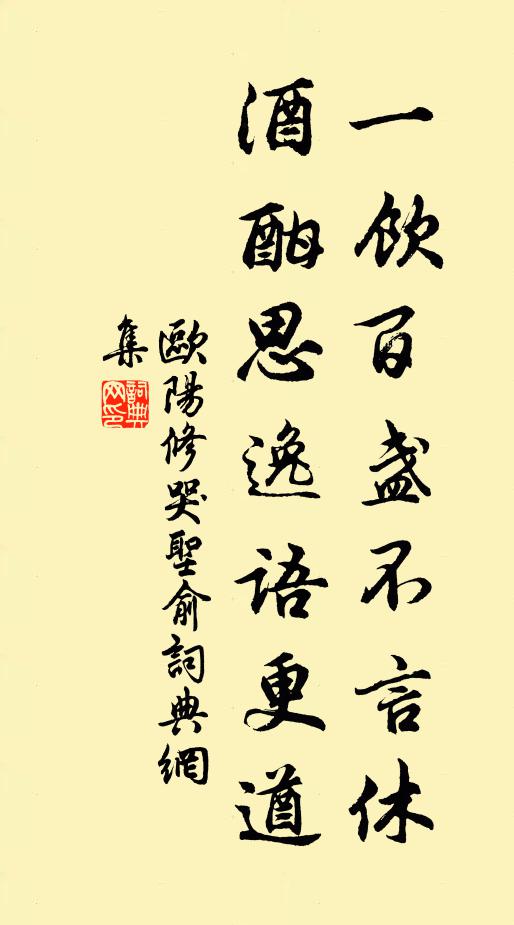 一飲百盞不言休
酒酣思逸語更遒
歐陽修哭聖俞詞典網
集
詞典
网印